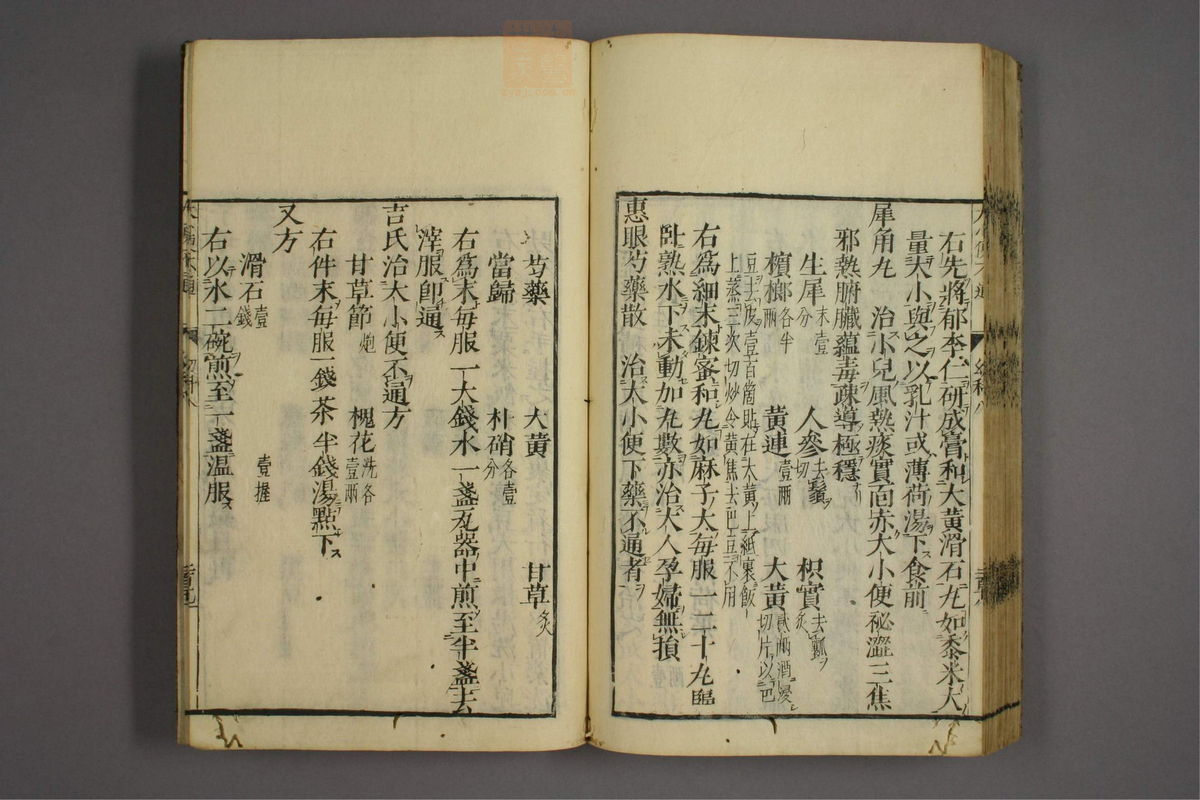 右先將郁李仁研成膏和大黃滑石丸如黍米大
量大小與之以乳汁或薄荷湯下食前
犀角丸　治小兒風熱痰實面赤大小便祕澀三焦
邪熱腑臟蘊毒疎導極穩
生犀末壹分　人參去鬚切　枳實去瓤炙
檳榔各半兩　黃連壹兩　大黃貳兩酒浸切片以巴
豆去皮壹百箇貼在大黃上紙裹飯
上蒸三次切炒令黃焦去巴豆不用
右為細末鍊蜜和丸如麻子大每服一二十丸臨
臥熟水下未動加丸數亦治大人孕婦無損
惠眼芍藥散　治大小便下藥不通者
芍藥　大黃　甘草炙
當歸　朴硝各壹分
右為末每服一大錢水一盞瓦器中煎至半盞去
滓服即通
吉氏治大小便不通方
甘草節炮　槐花洗各壹兩
右件末每服一錢茶半錢湯點下
又方
滑石壹錢　壹握
右以水二碗煎至一盞溫服